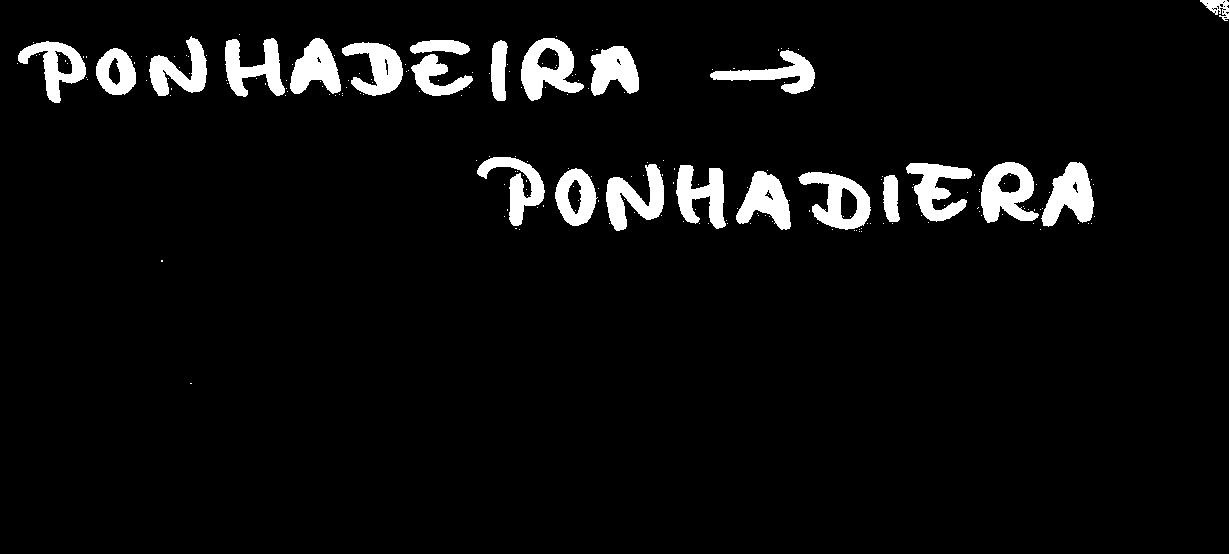 PONHADEIRA →
PONHADIERA